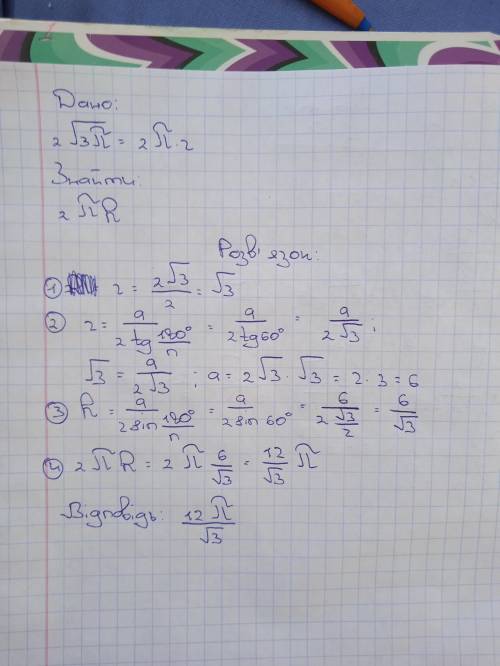 Дано:
2√3π = 2π·r
Знайти:
2πR
Розв'язок:
① r = 2√3/2 = √3
② r = a/(2 tg 180°/n) = a/(2 tg 60°) = a/(2√3);
√3 = a/(2√3) ; a = 2√3 · √3 = 2 · 3 = 6
③ R = a/(2 sin 180°/n) = a/(2 sin 60°) = 6/(2 √3/2) = 6/√3
④ 2πR = 2π 6/√3 = 12/√3 π
Відповідь: 12π/√3